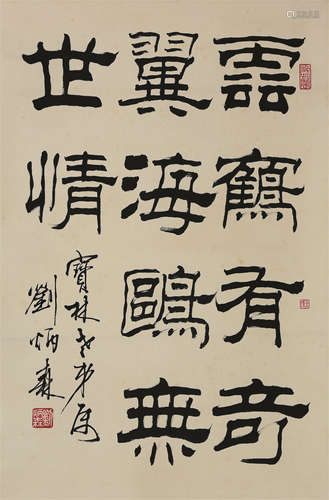 雲鶴有奇
翼海鷗無
世情
寶林老弟屬
劉炳森